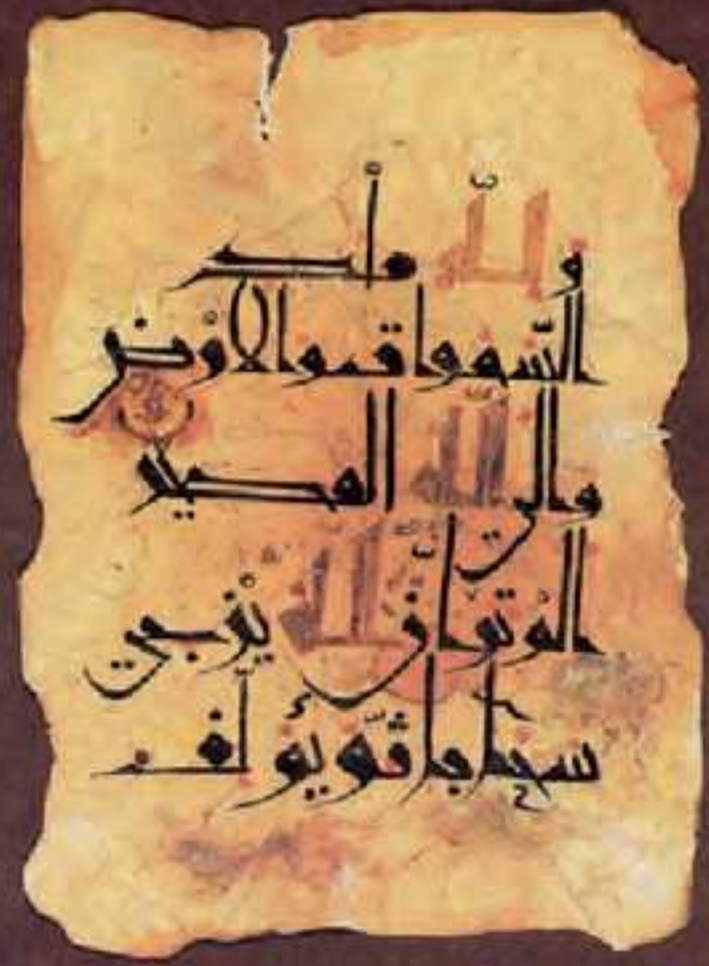 ولله ملك
السّموات والارْض
والى الله المصير
الم تر انّ الله يزْجي
سحابا ثمّ يؤلف